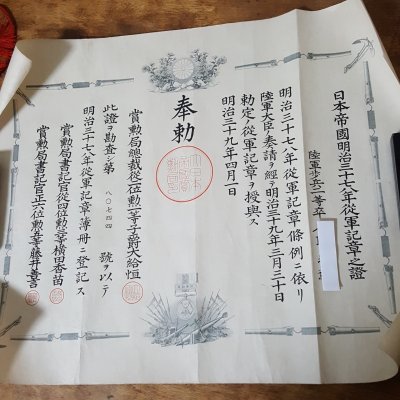 日本帝國明治三十七八年従軍記章之證
陸軍歩兵一等卒
明治三十七八年従軍記章條例ニ依リ
陸軍大臣ノ奏請ヲ經テ明治三十九年三月三十日
勅定ノ従軍記章ヲ授與ス
明治三十九年四月一日
奉勅
賞勲局總裁従二位勲一等子爵大給恒
此證ヲ勘査シ第八〇七四四號ヲ以テ
明治三十七八年従軍記章簿冊ニ登記ス
賞勲局書記官従四位勲三等横田香苗
賞勲局書記官正六位勲五等藤井善言